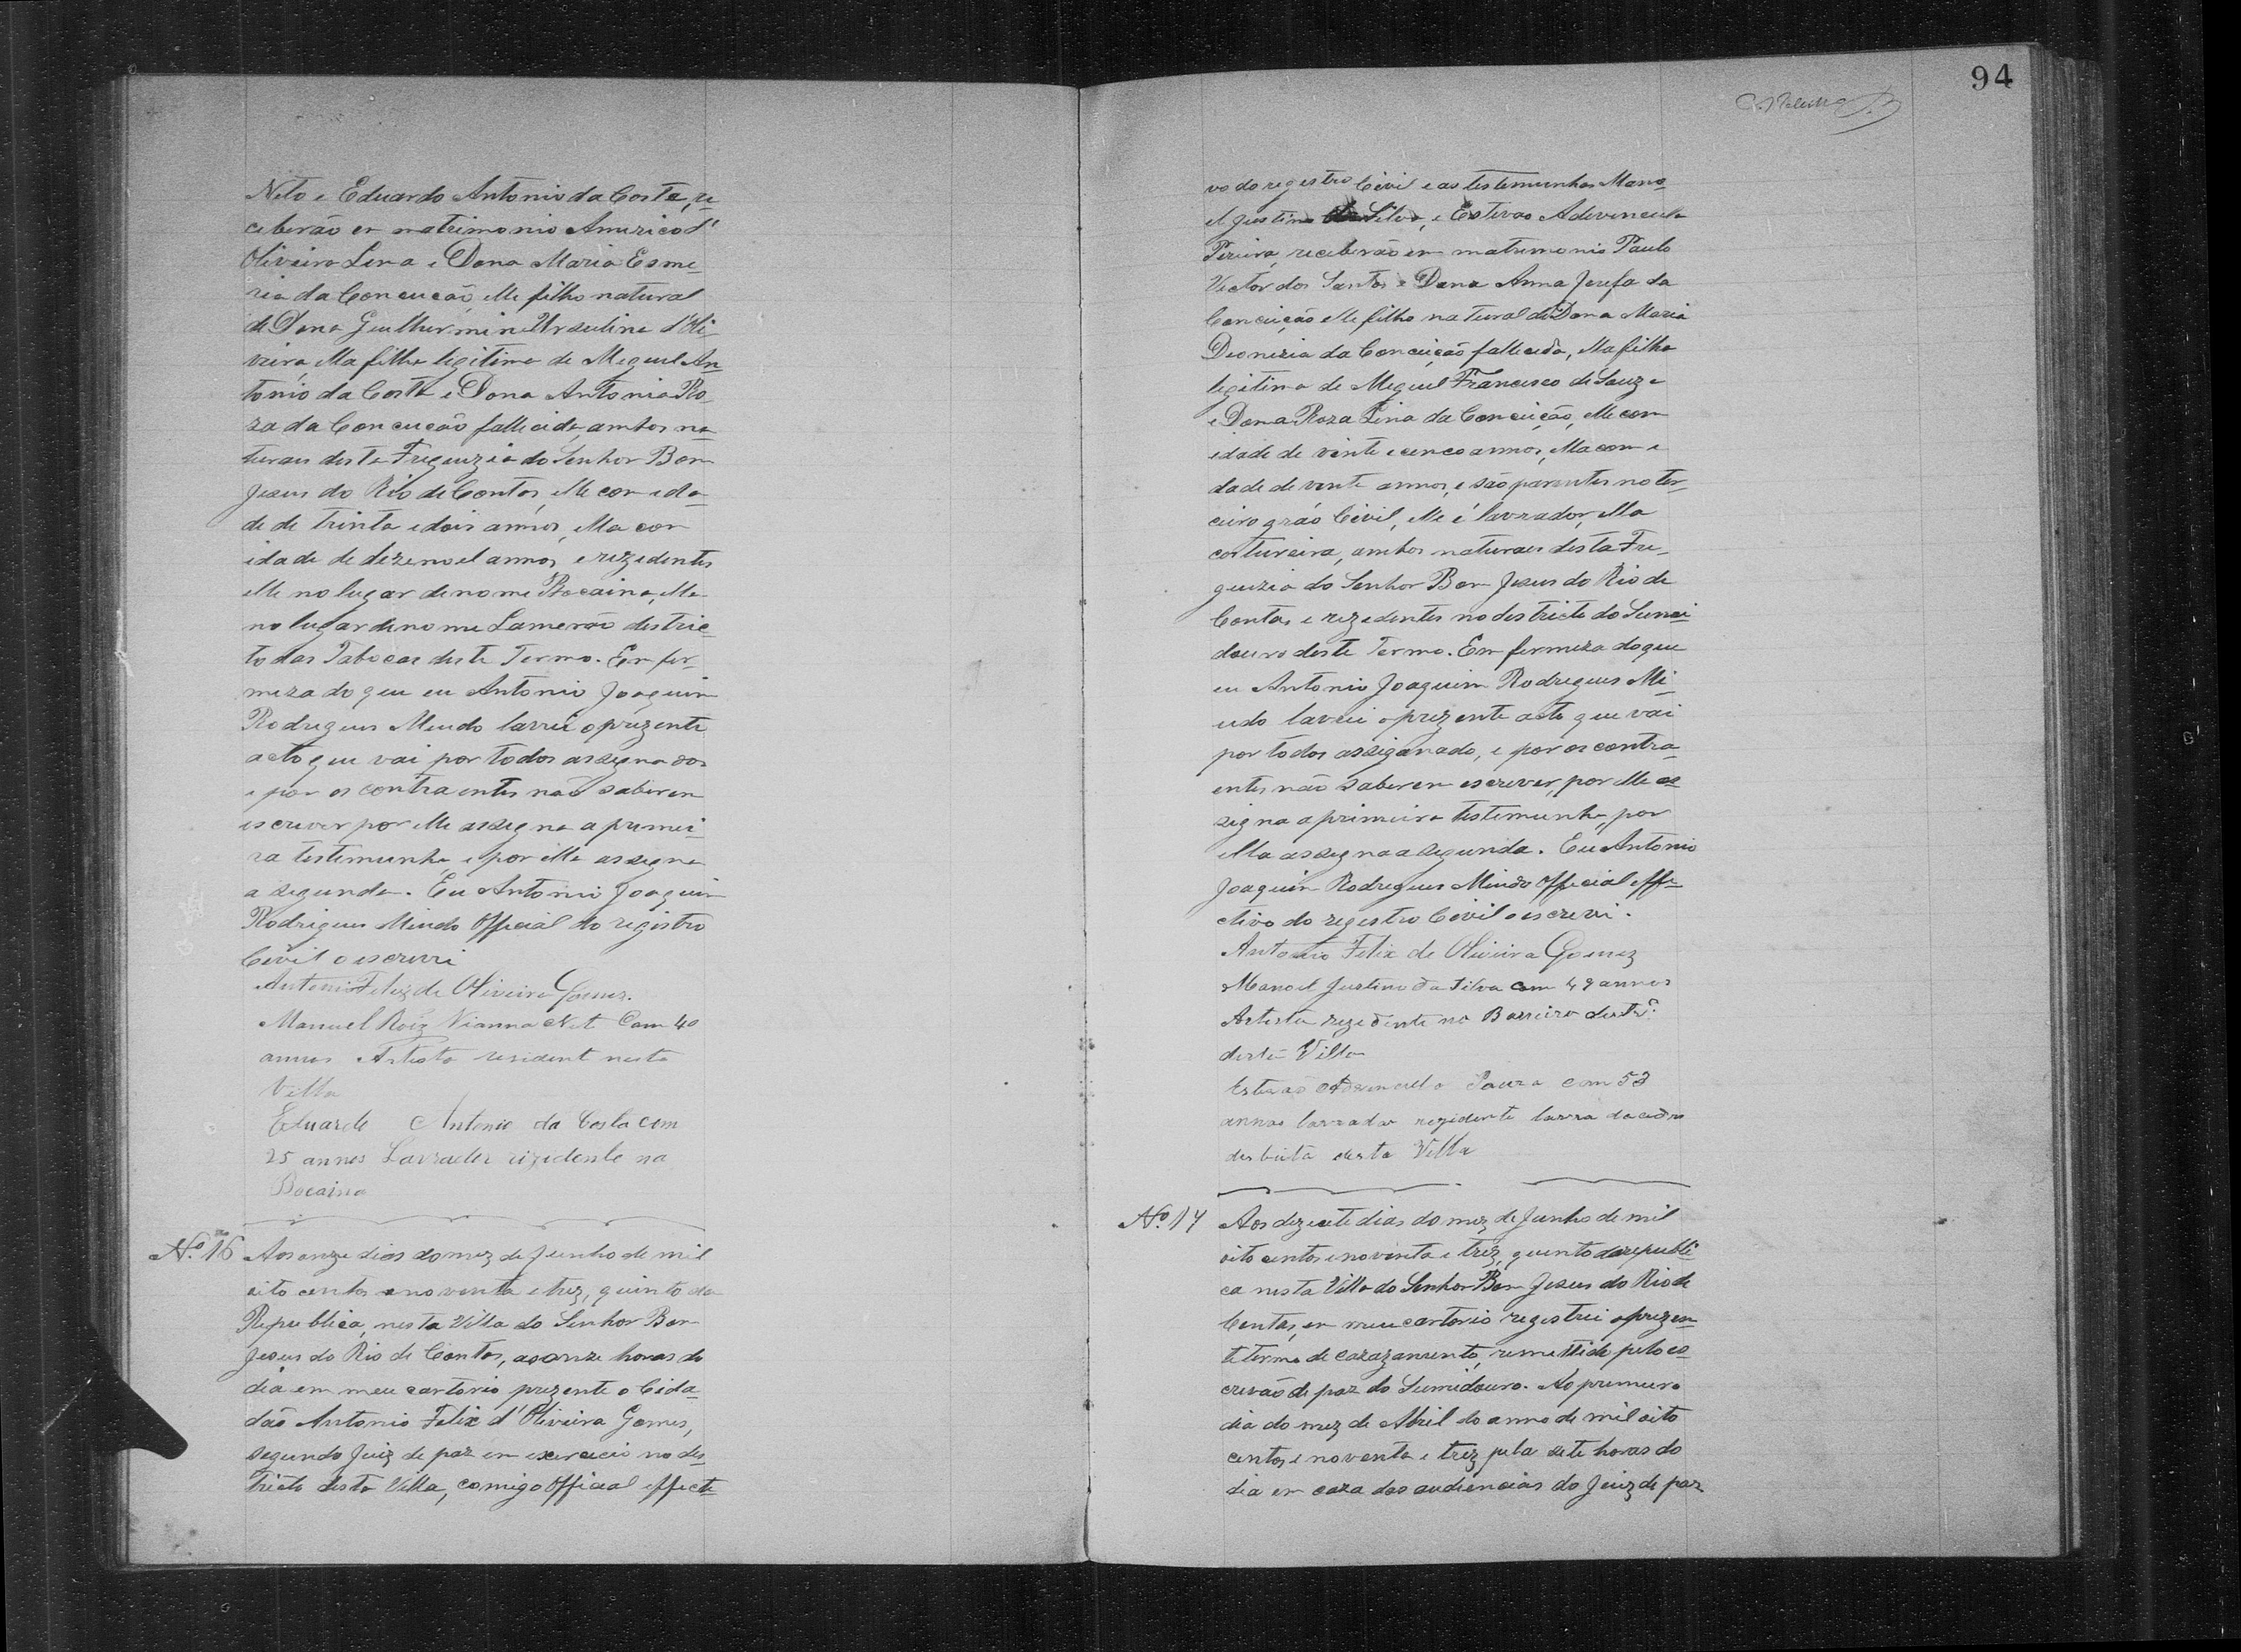 Neto e Eduardo Antonio da Costa, re
ceberão em matrimonio Americo d'
Oliveira Lima e Dona Maria Esme-
ria da Conceição, elle filho natural
de Dona Guilhermina Ursulina d'Oli-
veira, ella filha legitima de Miguel An
tonio da Costa e Dona Antonia Ro-
za da Conceição fallecida, ambos na
turaes desta Freguezia do Senhor Bom
Jesus do Rio de Contas, elle com ida-
de de trinta e dois annos, ella com
idade de dezenoel annos, e rezedentes
elle no lugar de nome Bocaina, ella
no lugar de nome Lamerão destric-
to das Tabocas deste Termo. Em fir-
meza do que eu Antonio Joaquim
Rodrigues Miudo lavrei o prezente
acto que vai por todos assegnados
e por os contraentes não saberem
escrever por elle assegna a primei-
ra testemunha, e por ella assegna
a segunda. Eu Antonio Joaquim
Rodrigues Miudo Official do registro
Civil o escrevi
Antonio Felix de Oliveira Gomes.
Manuel Roiz Vianna Neto Com 40
annos Artista resident nesta
Villa
Eduardo Antonio da Costa com
25 annos Lavrador rezidente na
Bocaina
No. 16 Aos onze dias do mez de Junho de mil
oito centos e noventa e trez, quinto da
Republica, nesta Villa do Senhor Bom
Jesus do Rio de Contas, as onze horas do
dia em meu cartorio prezente o Cida-
dão Antonio Felix d'Oliveira Gomes,
segundo Juiz de paz em exercicio no des-
tricto desta Villa, comigo Official effecti-
94
vo do registro Civil e as testemunhas Mano-
el Justino da Silva, e Estevão Adevincula
Pereira, receberão em matrimonio Paulo
Victor dos Santos e Dona Anna Josefa da
Conceição elle filho natural de Dona Maria
Dionizia da Conceição fallecida, ella filha
legitima de Miguel Francisco de Souza
e Dona Roza Lina da Conceição, elle com
idade de vinte e cinco annos, ella com i
dade de vinte annos, e são parentes no ter-
ceiro gráo Civil, elle é lavrador, ella
costureira, ambos naturaes desta Fre-
guezia do Senhor Bom Jesus do Rio de
Contas e rezedentes no destricto do Sumi
douro deste Termo. Em fermeza do que
eu Antonio Joaquim Rodregues Mi-
udo lavrei o prezente acto que vai
por todos assiganado, e por os contra-
entes não saberem escrever, por elle as
signa a primeira testemunha, por
ella assegna a segunda. Eu Antonio
Joaquim Rodregues Miudo Official effe-
ctivo do registro Civil o escrevi.
Antonio Felix de Oliveira Gomez
Manoel Justino da Silva com 49 annos
Artista rezedente no Barreiro destro.
desta Villa
Estevão com 53
annos lavrador rezidente
desta Villa
No. 17 Aos dezecete dias do mez de Junho de mil
oito centos e noventa e trez, quinto da republi
ca nesta Villa do Senhor Bom Jesus do Rio de
Contas, em meu cartorio registrei o prezen
te termo de cazazamento, remettido pelo es-
crivão de paz do Sumidouro. Ao primeiro
dia do mez de Abril do anno de mil oito
centos e noventa e trez pela sete horas do
dia em caza das audiencias do Juiz de paz